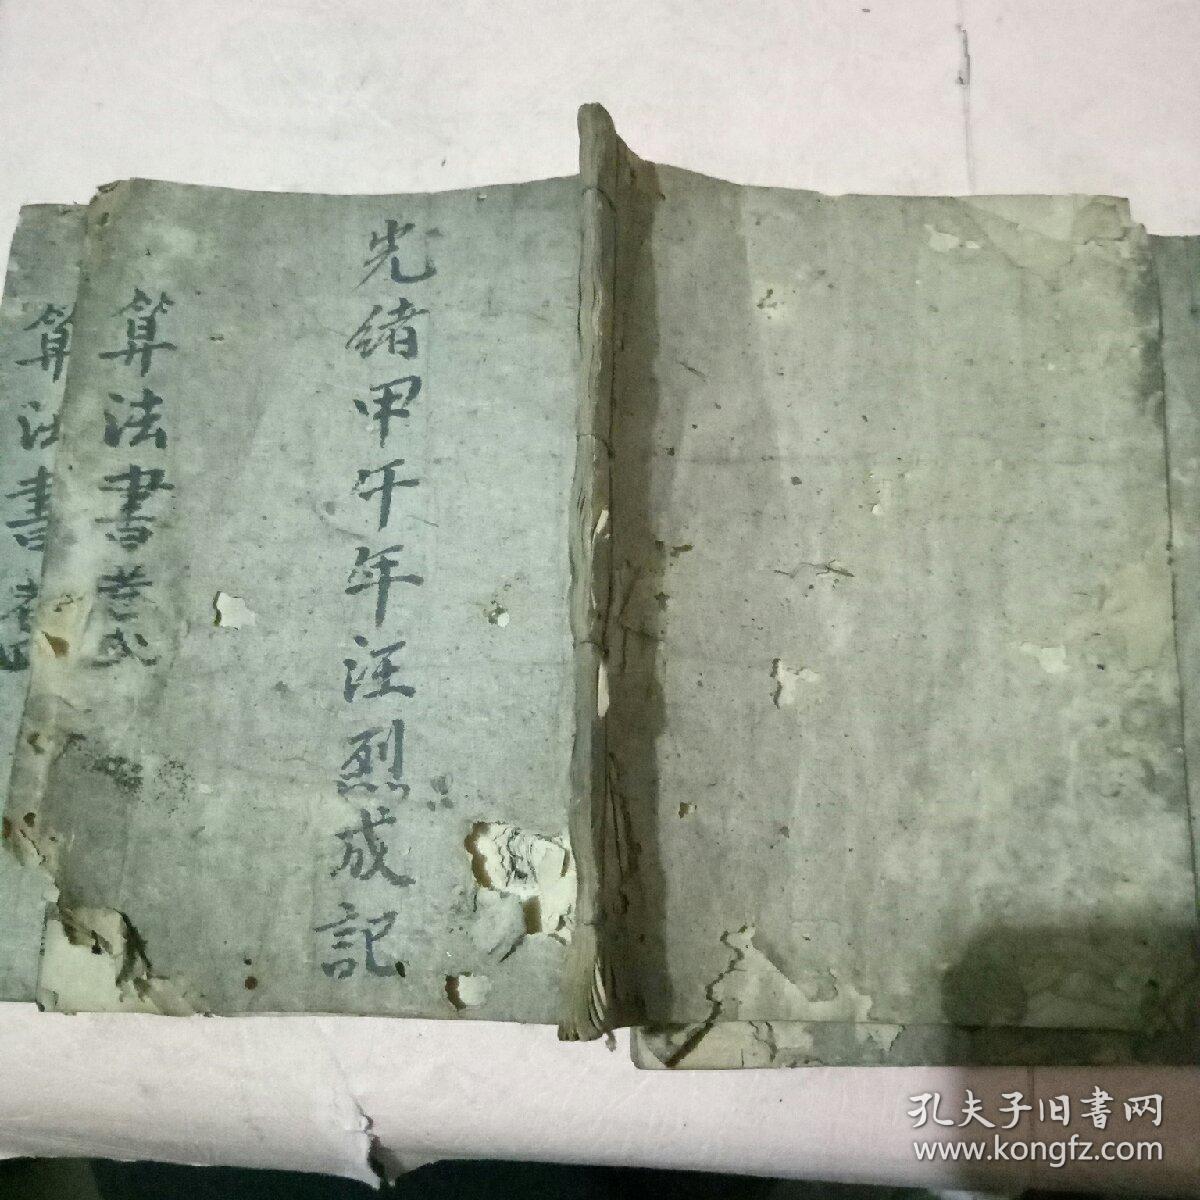 光緒甲午年汪烈成記
算法書卷弍
算法書卷四
孔夫子旧書网
www.kongfz.com